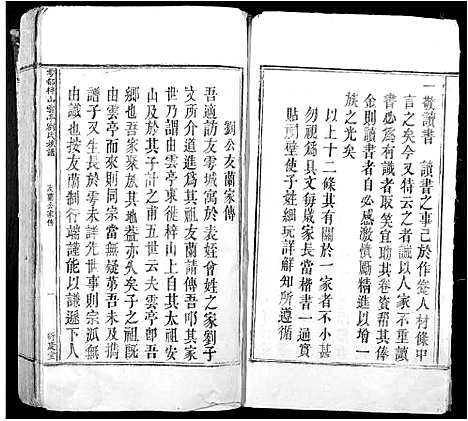 一敬讀書　讀書之事已於作塋人材條中
言之矣今又特云之者誠以人家不重讀
書必爲有識者取笑宜助其卷資幫其俸
金則讀書者自必感激憤勵精進以增一
族之光矣
以上十二條其有關於一家者不小甚
勿視爲具文每歲家長當稽書一通實
貼祠壁使子姓細玩詳解知所遵循
劉公友蘭家傳
吾適訪友雩城寓於表姪會姓之家劉子
文所介道進爲其祖友蘭請傳吾叩其
世乃謂由雲亭東徙梓山上自其太祖安
山及於其子計之甫五世云夫雲亭郎吾
鄉也吾家聚族其地蓋亦久矣子之祖既
由雲亭而來則同宗當無疑第吾未及攜
譜子又生長於雩未詳先世事則宗派無
由識也按友蘭制行端謹能以謙遜下人
雩都梓山雲亭劉氏族譜
友蘭公家傳
一